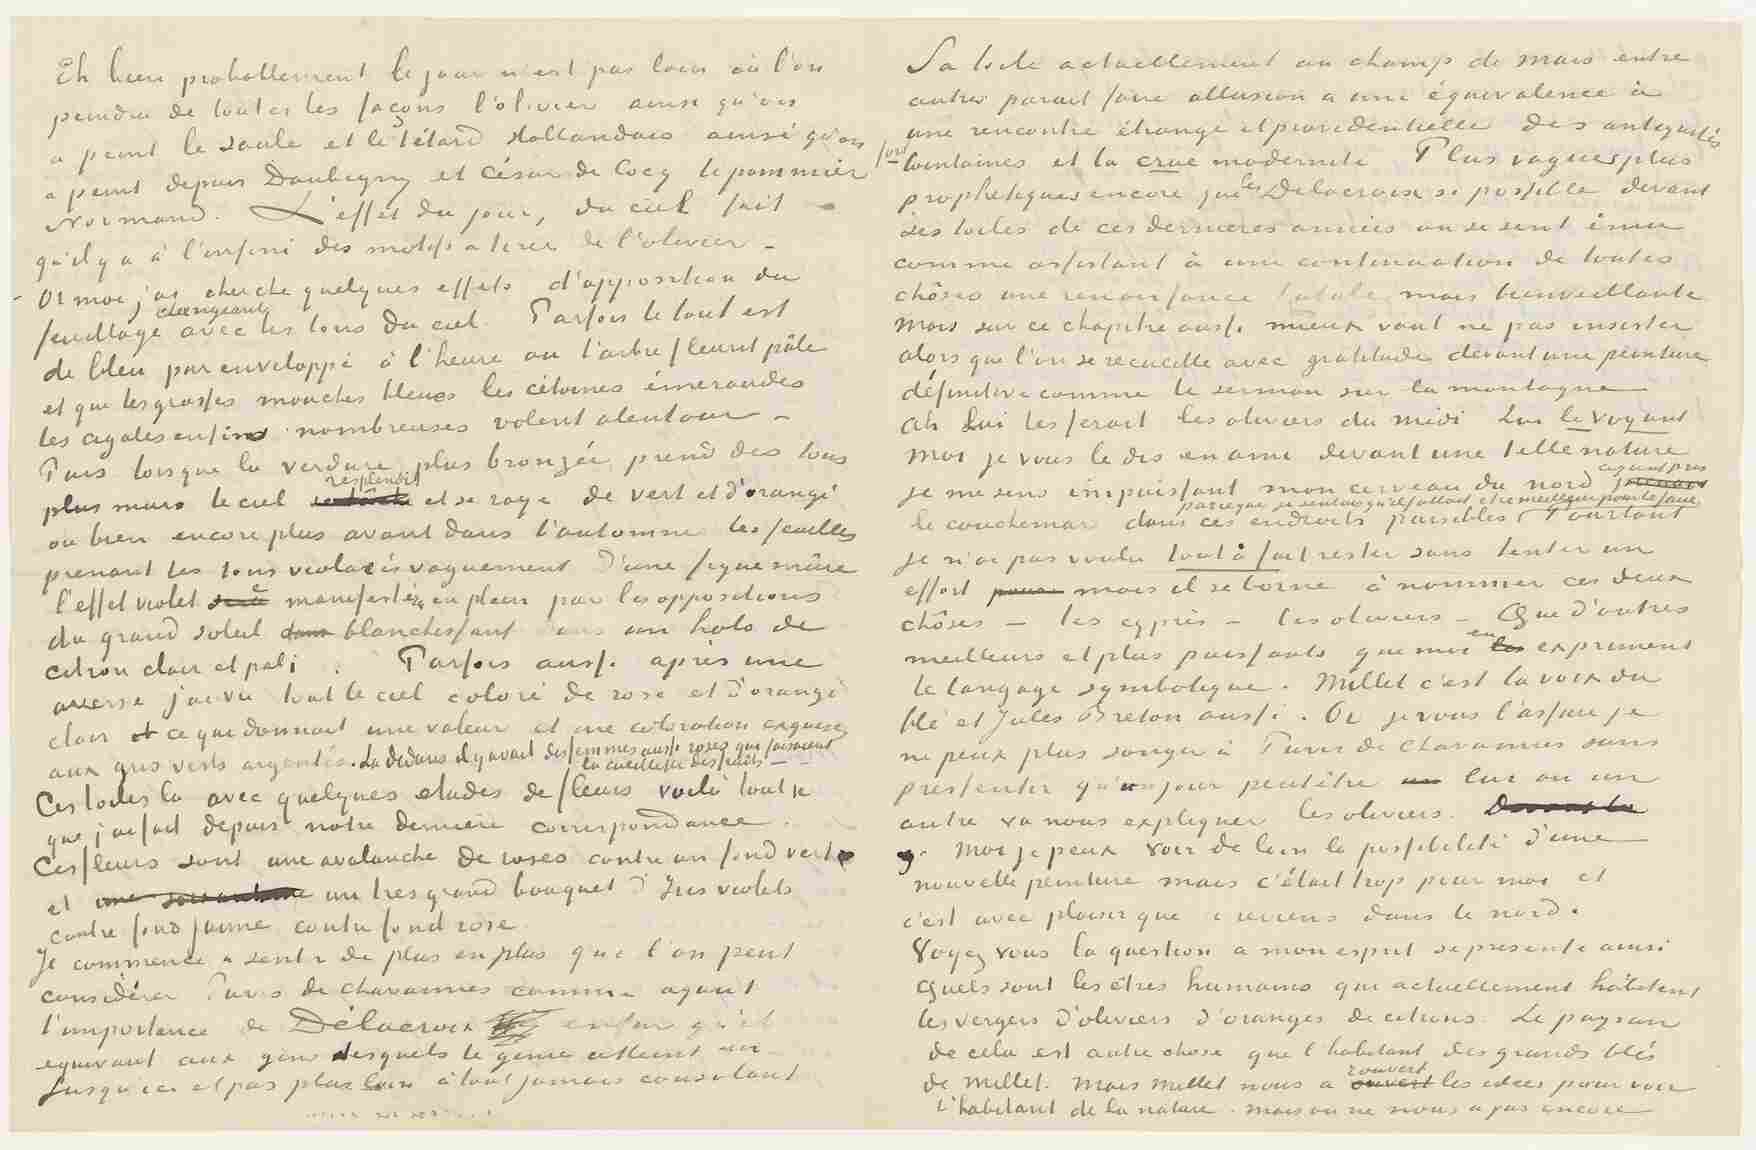 Eh bien probablement le jour n'est pas loin où l'on
peindra de toutes les façons l'olivier ainsi qu'on
a peint le saule et le têtard Hollandais ainsi qu'on
a peint depuis Daubigny et César de Cocq le pommier
Normand. L'effet du jour, du ciel fait
qu'il y a à l'infini des motifs a tirer de l'olivier –
Or moi j'ai cherché quelques effets d'opposition du
feuillage changeant avec les tons du ciel. Parfois le tout est
de bleu pur enveloppé à l'heure ou l'arbre fleurit pâle
et que les grosses mouches bleues les cétoines émeraudes
les cigales enfin nombreuses volent alentour –
Puis lorsque la verdure plus bronzée prend des tons
plus murs le ciel resplendit et se raye de vert et d'orangé
ou bien encore plus avant dans l'automne les feuilles
prenant les tons violacés vaguement d'une figue mûre
l'effet violet se manifestera en plein par les oppositions
du grand soleil blanchissant dans un halo de
citron clair et pali. Parfois aussi après une
averse j'ai vu tout le ciel coloré de rose et d'orangé
clair ce que donnait une valeur et une coloration exquise
aux gris verts argentés. La dedans il y avait des femmes aussi roses qui faisaient
la cueillette des fruits –
Ces toiles la avec quelques etudes de fleurs voilà tout ce
que j'ai fait depuis notre dernière correspondance.
Ces fleurs sont une avalanche de roses contre un fond vert
et un tres grand bouquet d'Iris violets
contre fond jaune contre fond rose.
Je commence a sentir de plus en plus que l'on peut
considérer Puvis de Chavannes comme ayant
l'importance de Délacroix enfin qu'il
equivaut aux gens desquels le genre atteint un
jusqu'ici et pas plus loin à tout jamais consolant
Sa toile actuellement au champ de mars entre
autres parait faire allusion a une équivalence à
une rencontre étrange et providentielle des antiquités fort
lointaines et la crue modernité Plus vagues plus
prophetiques encore que les Delacroix si possible devant
ses toiles de ces dernieres années on se sent ému
comme assistant à une continuation de toutes
chôses une renaissance fatale mais bienveillante
Mais sur ce chapitre aussi mieux vaut ne pas insister
alors que l'on se recueille avec gratitude devant une peinture
définitive comme le sermon sur la montagne
Ah Lui les ferait les oliviers du midi Lui le voyant
Moi je vous le dis en ami devant une telle nature
je me sens impuissant mon cerveau du nord ayant pris
le cauchemar dans ces endroits paisibles parceque je sentais qu'il fallait etre meilleur pour le faire Pourtant
je n'ai pas voulu tout à fait rester sans tenter un
effort mais il se borne à nommer ces deux
chôses – les cyprès – les oliviers – Que d'autres
meilleurs et plus puissants que moi en expriment
le langage symbolique. Millet c'est la voix du
blé et Jules Breton aussi. Or je vous l'assure je
ne peux plus songer à Puvis de Chavannes sans
pressentir qu'un jour peutêtre lui ou un
autre va nous expliquer les oliviers.
Moi je peux voir de loin la possibilité d'une
nouvelle peinture mais c'était trop pour moi et
c'est avec plaisir que je reviens dans le nord.
Voyez vous la question a mon esprit se presente ainsi
Quels sont les êtres humains qui actuellement habitent
les vergers d'oliviers d'oranges de citrons. Le paysan
de cela est autre chose que l'habitant des grands blés
de Millet. Mais Millet nous a rouvert les idées pour voir
l'habitant de la nature. Mais on ne nous a pas encore